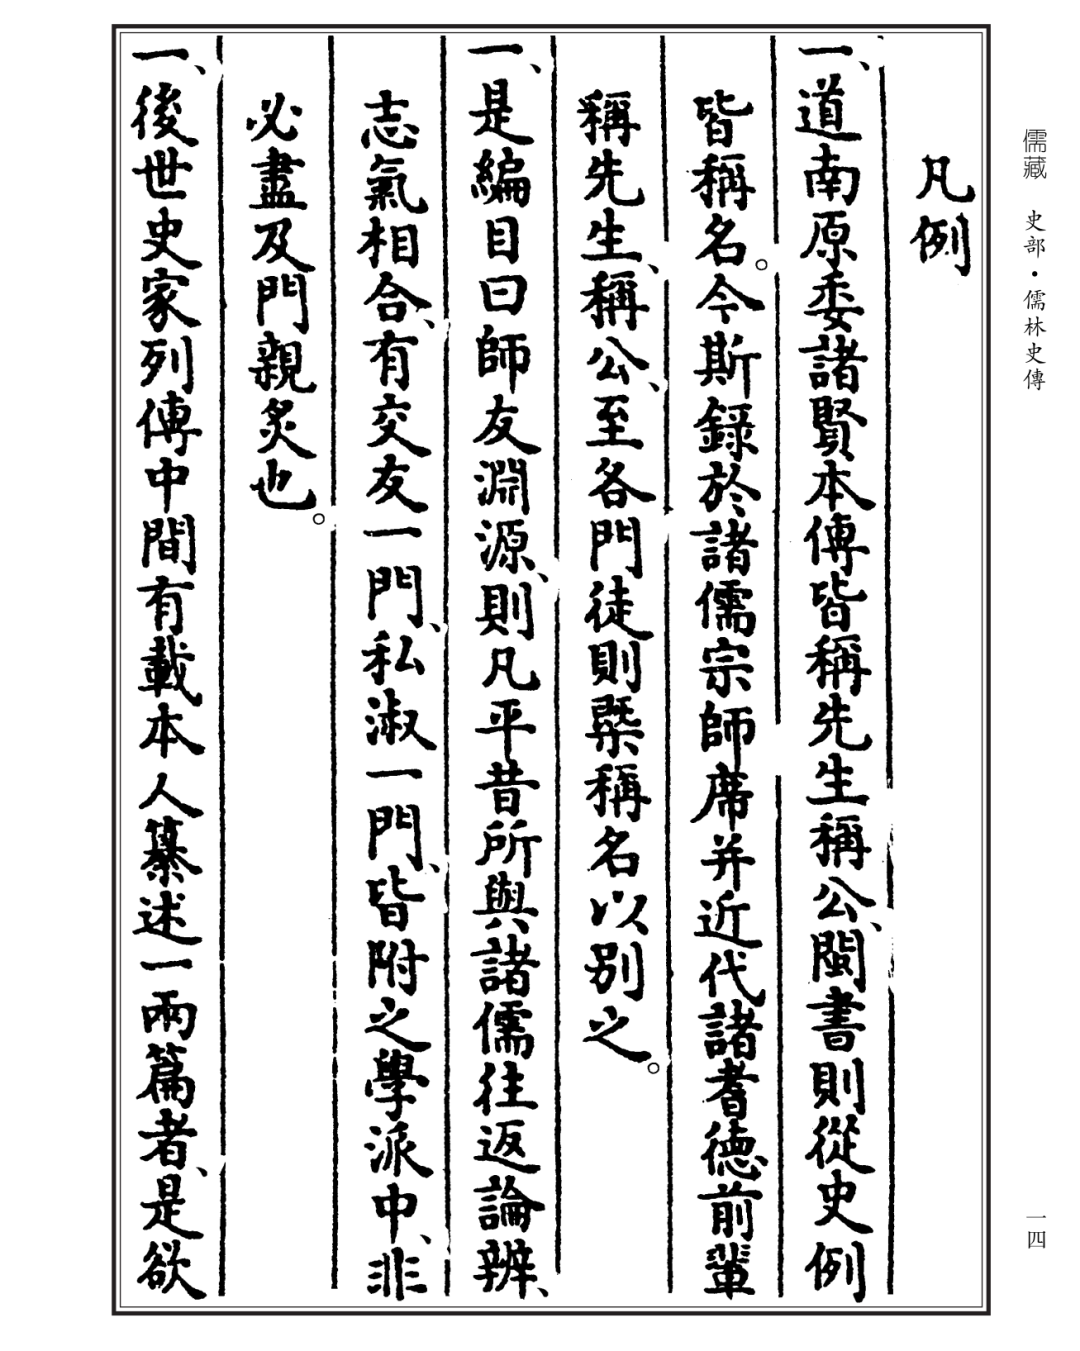 儒藏 史部·儒林史傳
凡例
一、道南原委諸賢本傳皆稱先生稱公、閩書則從史例
皆稱名。今斯錄於諸儒宗師席并近代諸耆德前輩
稱先生、稱公、至各門徒則槩稱名以別之。
一、是編目曰師友淵源、則凡平昔所與諸儒往返論辨、
志氣相合、有交友一門、私淑一門、皆附之學派中、非
必盡及門親炙也。
一、後世史家列傳中間有載本人纂述一兩篇者、是欲
一四